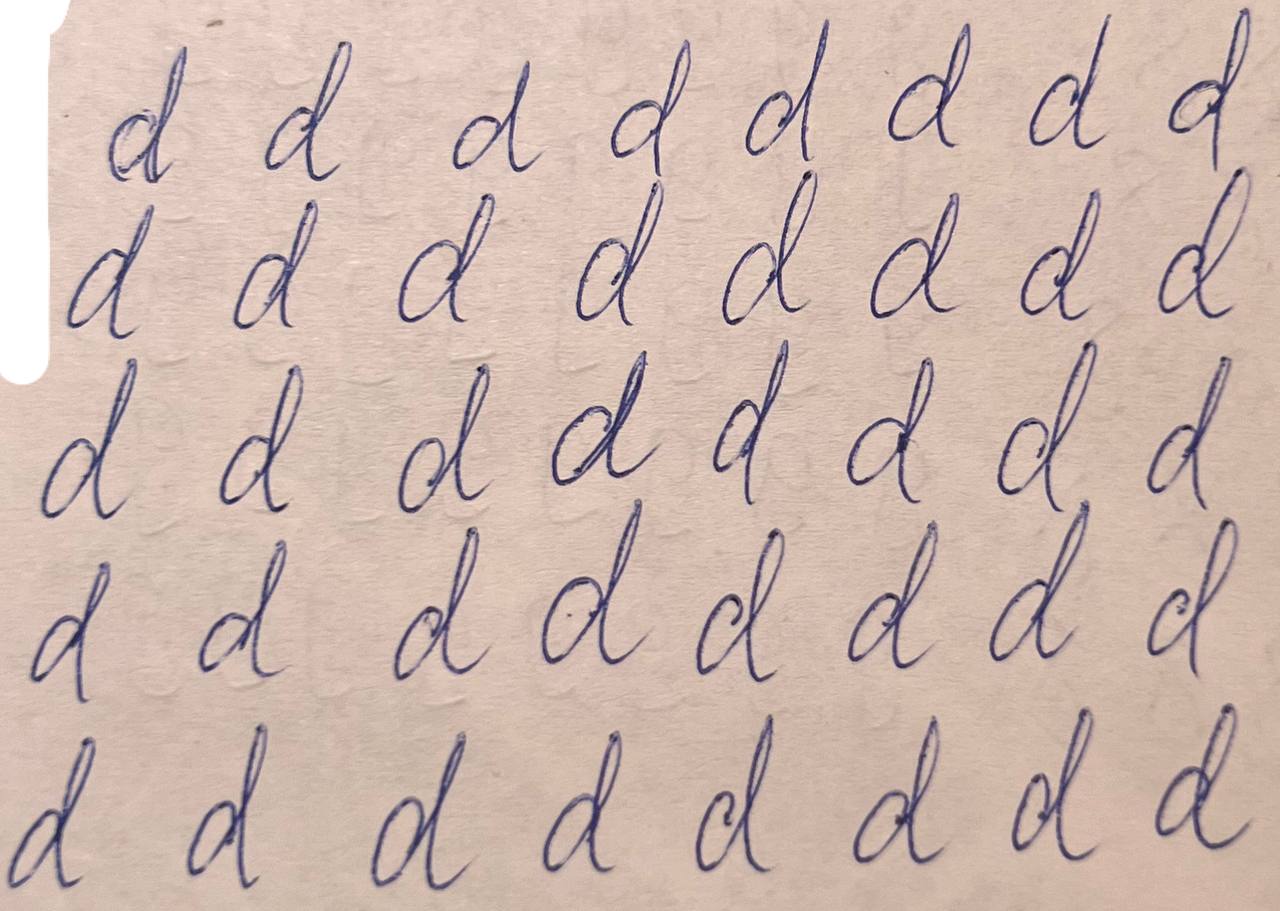 d d d d d d d d
d d d d d d d d
d d d d d d d d
d d d d d d d d
d d d d d d d d